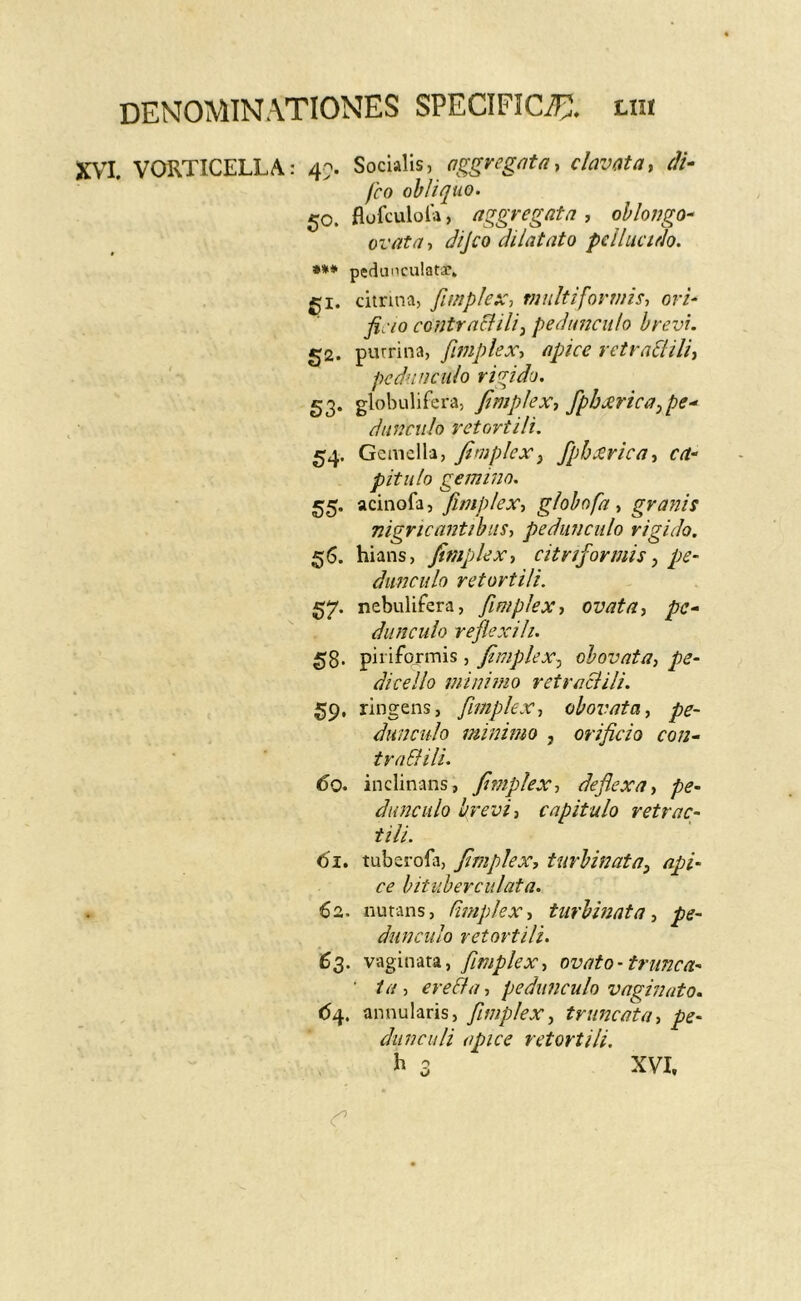 DENOMINATIONES SPECIFICÆ. LIII
XVI. VORTICELLA: 49. Socialis, aggregata, clavata, di-
ſco obliquo.
50. floſculoſa, aggregata, oblongo-
ovata, diſco dilatato pellucido.
*** pedunculatæ.
51. citrina, ſimplex, multiformis, ori-
ficio contractili, pedunculo brevi.
52. putrina, ſimplex, apice retractili,
pedunculo rigido.
53. globulifera, ſimplex, ſphærica, pe-
dunculo retortili.
54. Gemella, ſimplex, ſphærica, ca-
pitulo gemino.
55. acinoſa, ſimplex, globoſa, granis
nigricantibus, pedunculo rigido.
56. hians, ſimplex, citriformis, pe-
dunculo retortili.
57. nebulifera, ſimplex, ovata, pe-
dunculo reflexili.
58. piriformis, ſimplex, obovata, pe-
dicello minimo retractili.
59. ringens, ſimplex, obovata, pe-
dunculo minimo, orificio con-
tractili.
60. inclinans, ſimplex, deflexa, pe-
dunculo brevi, capitulo retrac-
tili.
61. tuberoſa, ſimplex, turbinata, api-
ce bituberculata.
62. nutans, ſimplex, turbinata, pe-
dunculo retortili.
63. vaginata, ſimplex, ovato-trunca-
ta, erecta, pedunculo vaginato.
64. annularis, ſimplex, truncata, pe-
dunculi apice retortili.
h 3 XVI.